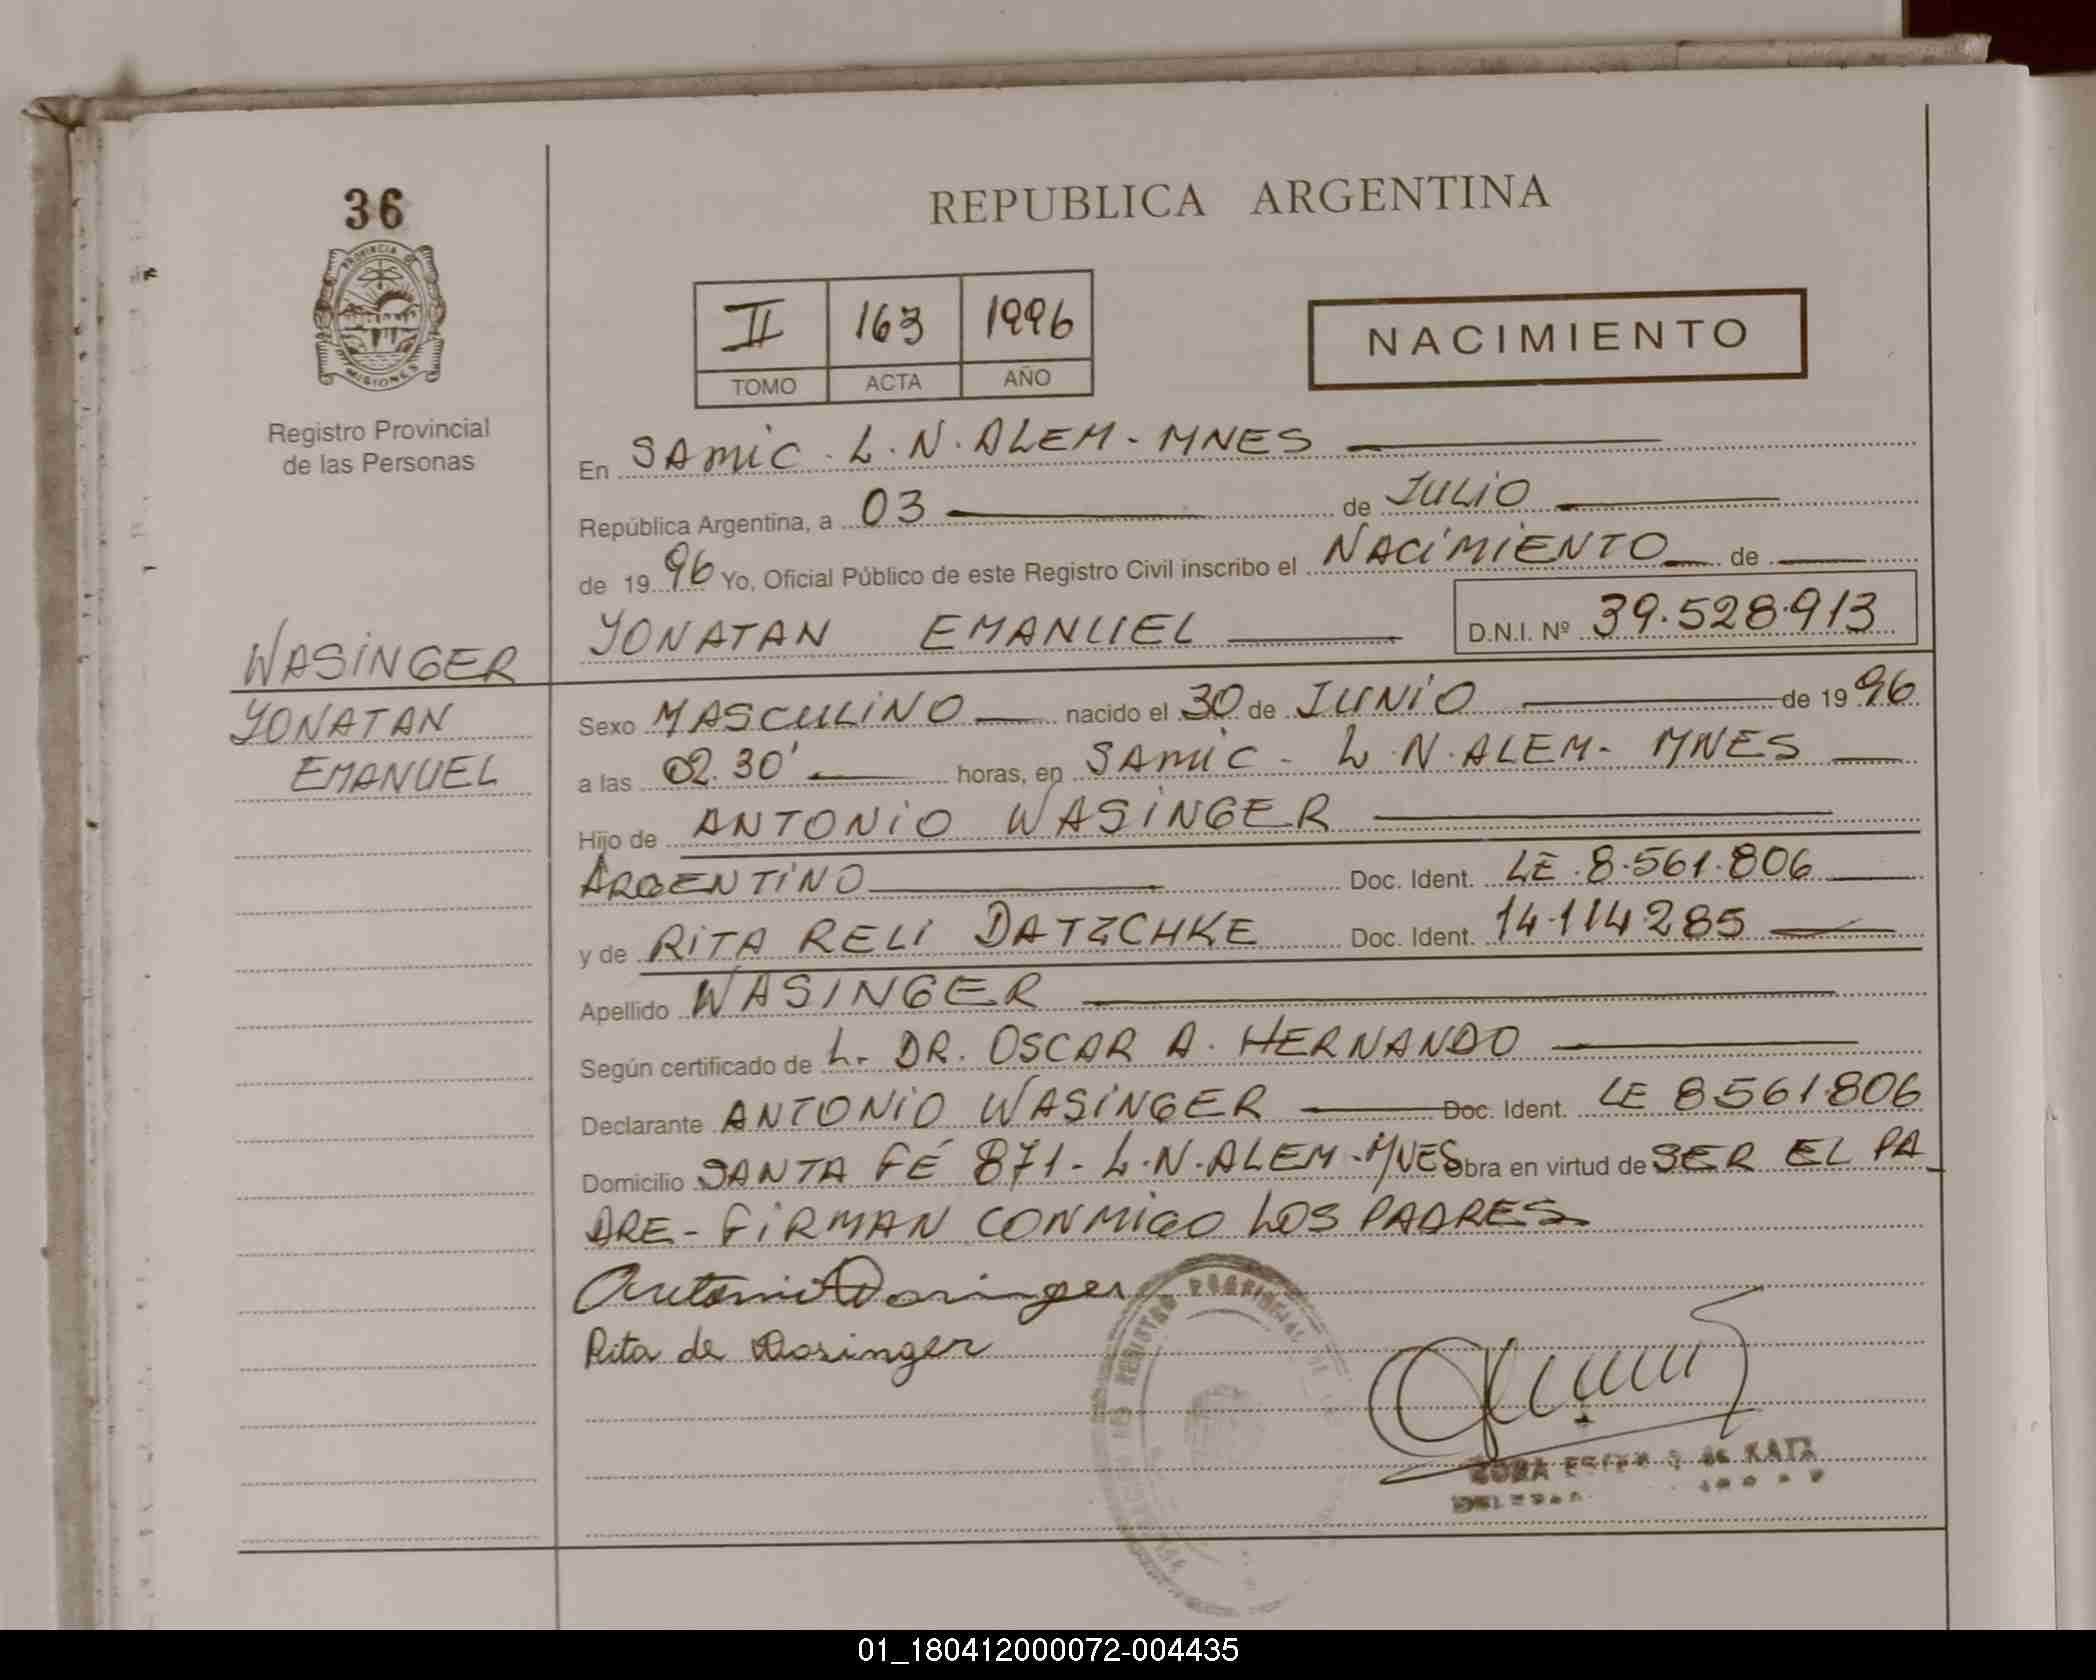 36
PROVINCIA DE
MISIONES
Registro Provincial
de las Personas
WASINGER
YONATAN
EMANUEL
REPUBLICA ARGENTINA
II 163 1996
TOMO ACTA AÑO
NACIMIENTO
En SAMIC. L.N. ALEM - MNES
República Argentina, a 03 de JULIO
de 1996 Yo, Oficial Público de este Registro Civil inscribo el NACIMIENTO de
YONATAN EMANUEL D.N.I. Nº 39.528.913
Sexo MASCULINO nacido el 30 de JUNIO de 1996
a las 02.30' horas, en SAMIC - L.N. ALEM - MNES
Hijo de ANTONIO WASINGER
ARGENTINO Doc. Ident. LE 8.561.806
y de RITA RELI DATZCHKE Doc. Ident. 14.114.285
Apellido WASINGER
Según certificado de L. DR. OSCAR A. HERNANDO
Declarante ANTONIO WASINGER Doc. Ident. LE 8.561.806
Domicilio SANTA FÉ 871 - L.N. ALEM - MNES Obra en virtud de SER EL PA
DRE - FIRMAN CONMIGO LOS PADRES
Antonio Wasinger
Rita de Wasinger
REGISTRO PROVINCIAL DE
DE KATZ
01_180412000072-004435